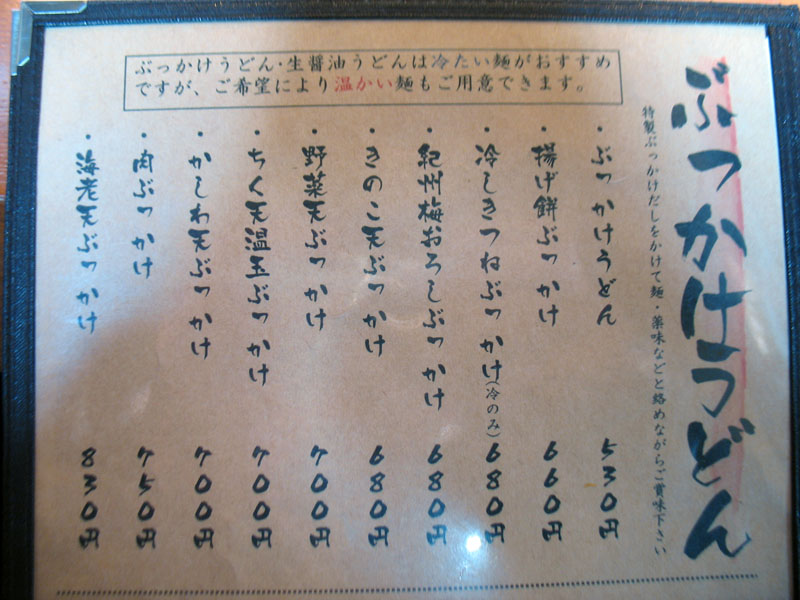 ぶっかけうどん・生醤油うどんは冷たい麺がおすすめ
ですが、ご希望により温かい麺もご用意できます。
ぶっかけうどん
特製ぶっかけだしをかけて麺・薬味などと絡めながらご賞味下さい
・ぶっかけうどん 530円
・揚げ餅ぶっかけ 660円
・冷しきつねぶっかけ(冷のみ) 680円
・紀州梅おろしぶっかけ 680円
・きのこ天ぶっかけ 680円
・野菜天ぶっかけ 700円
・ちく天温玉ぶっかけ 700円
・かしわ天ぶっかけ 700円
・肉ぶっかけ 750円
・海老天ぶっかけ 830円